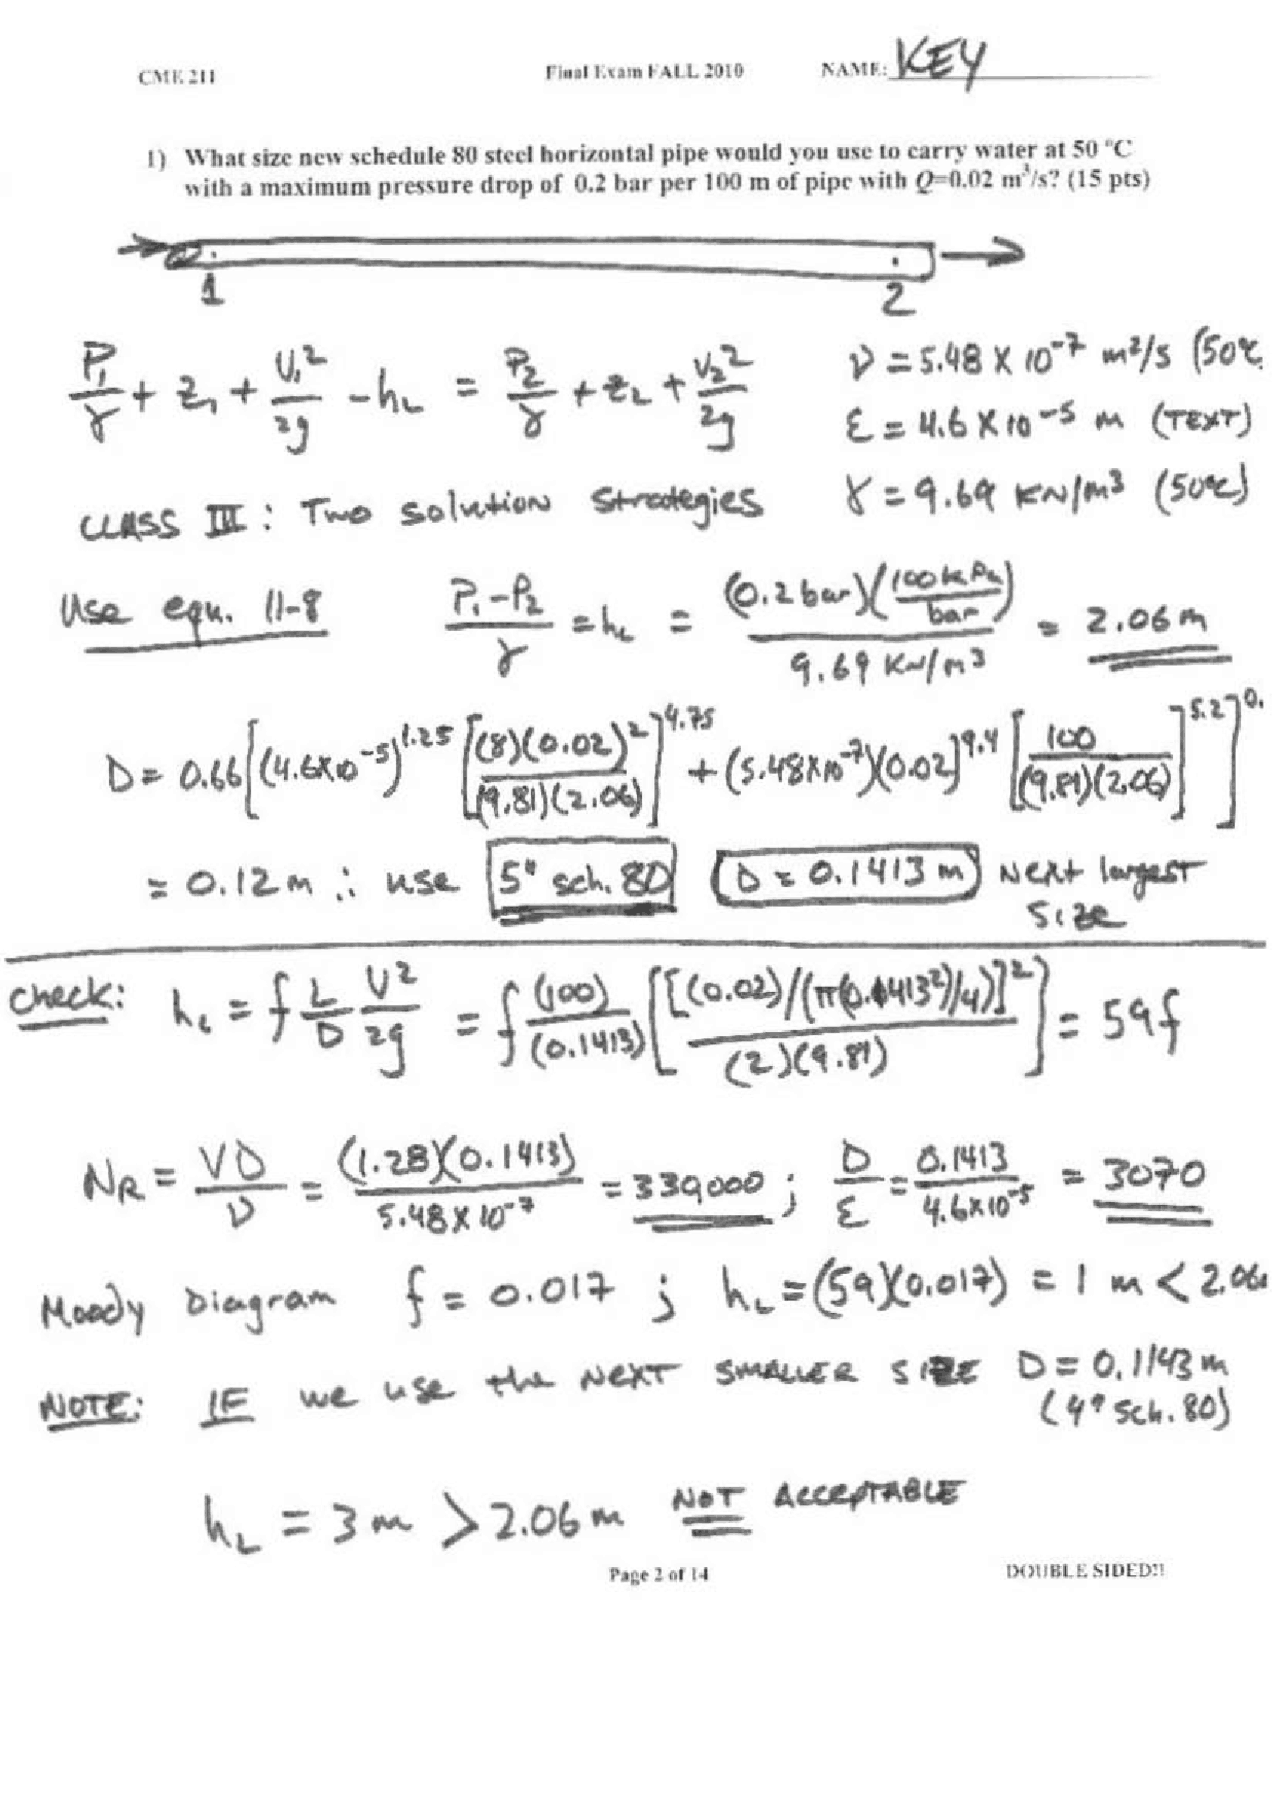 CME 211 Final Exam FALL 2010 NAME: KEY
1) What size new schedule 80 steel horizontal pipe would you use to carry water at 50 °C
with a maximum pressure drop of 0.2 bar per 100 m of pipe with Q=0.02 m³/s? (15 pts)
1 2
P₁/γ + z₁ + V₁²/2g - h_L = P₂/γ + z₂ + V₂²/2g
ν = 5.48 X 10⁻⁷ m²/s (50°C
ε = 4.6 X 10⁻⁵ m (TEXT)
γ = 9.69 KN/m³ (50°C)
CLASS III: Two solution strategies
Use equ. 11-8 (P₁-P₂)/γ = h_L = (0.2 bar)(100 kPa/bar)/9.69 KN/m³ = 2.06 m
D = 0.66[(4.6X10⁻⁵)^1.25 [(8)(0.02)²/(9.81)(2.06)]^4.75 + (5.48X10⁻⁷)(0.02)^9.4 [100/(9.81)(2.06)]^5.2]^0.
= 0.12 m ∴ use 5" sch. 80 D = 0.1413 m Next largest
Size
Check: h_L = f L/D V²/2g = f (100)/(0.1413) [[(0.02)/(π(0.1413²)/4)]²/(2)(9.81)] = 59f
N_R = VD/ν = (1.28)(0.1413)/5.48 X 10⁻⁷ = 330000 ; D/ε = 0.1413/4.6X10⁻⁵ = 3070
Moody Diagram f = 0.017 ; h_L = (59)(0.017) = 1 m < 2.06
NOTE: IF we use the NEXT SMALLER SIZE D = 0.1143 m
(4" Sch. 80)
h_L = 3 m > 2.06 m NOT ACCEPTABLE
Page 2 of 14 DOUBLE SIDED!!